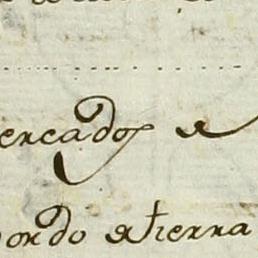 ercados a
ordo atierra